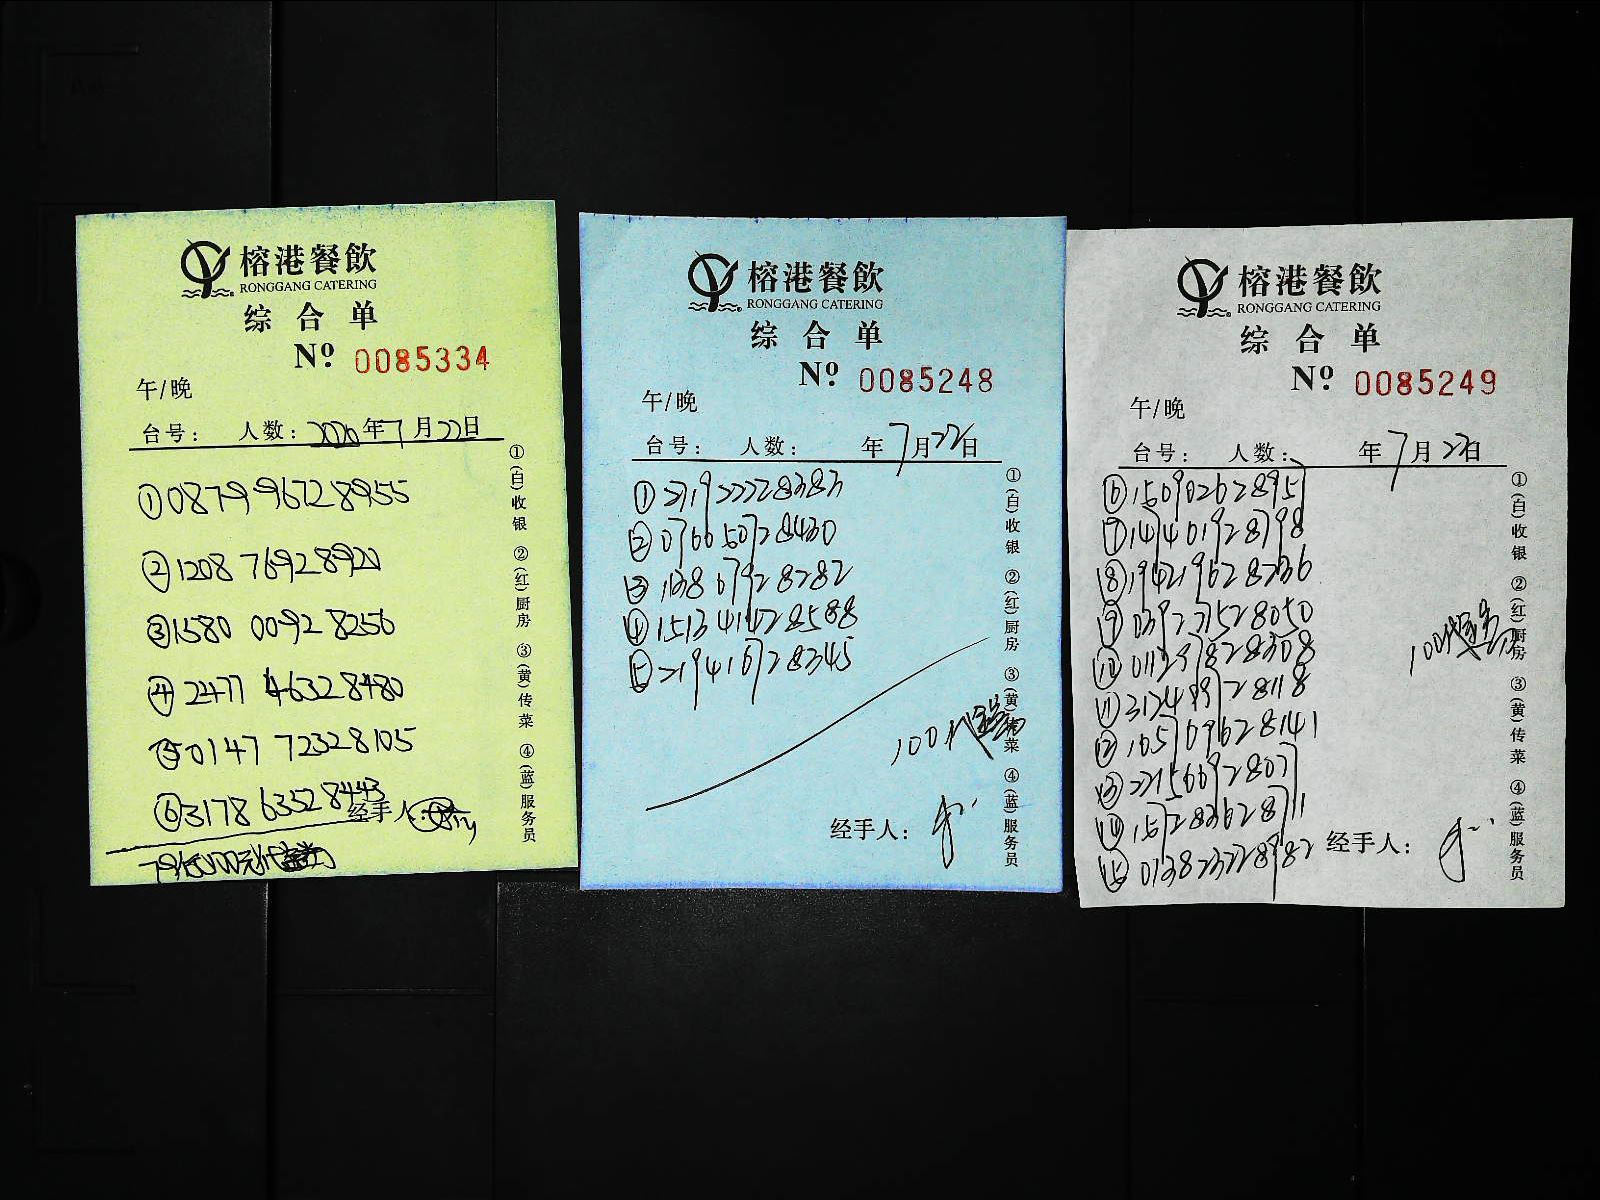 榕港餐飲
RONGGANG CATERING
综合单
Nº 0085334
午/晚
台号: 人数: 2020年7月22日
①087996728955
②120876928921
③158000928256
④247746328480
⑤014772328105
⑥317863528443
经手人:
①(白)收银 ②(红)厨房 ③(黄)传菜 ④(蓝)服务员
榕港餐飲
RONGGANG CATERING
综合单
Nº 0085248
午/晚
台号: 人数: 年7月22日
①271922228383
②076650728430
③113867928282
④151341428588
⑤219416728345
100代
经手人:
①(白)收银 ②(红)厨房 ③(黄)传菜 ④(蓝)服务员
榕港餐飲
RONGGANG CATERING
综合单
Nº 0085249
午/晚
台号: 人数: 年7月22日
⑥150902628957
⑦147401928798
⑧194219628236
⑨039277528050
⑩011397828308
⑪312489928118
⑫105709628141
⑬221566928077
⑭157283628711
⑮013823228982
100代
经手人:
①(白)收银 ②(红)厨房 ③(黄)传菜 ④(蓝)服务员